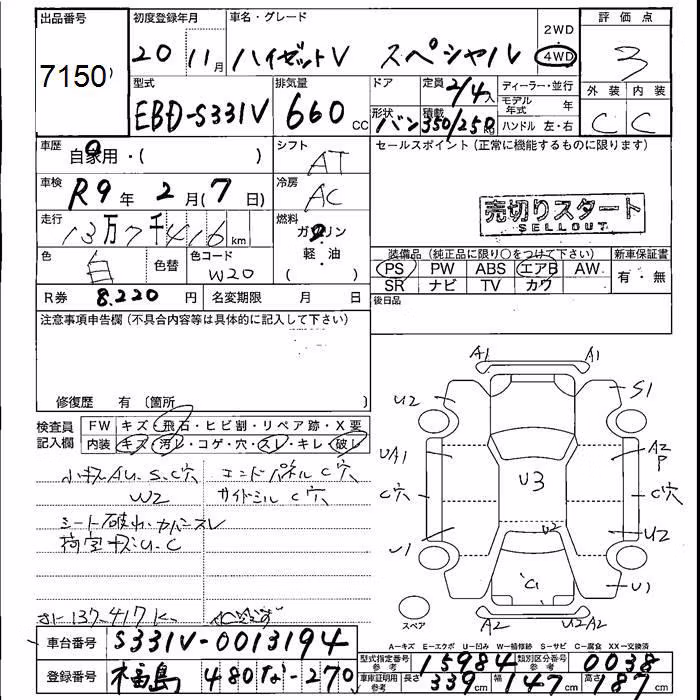 出品番号 7150
初度登録年月 20 11月
車名・グレード ハイゼットV スペシャル
2WD
4WD
評価点 3
外装 内装
C C
型式 EBD-S331V
排気量 660 cc
ドア
定員 2/4人
形状 バン
積載 350/250 kg
ディーラー・並行
モデル年式 年
ハンドル 左・右
車歴 自家用・( )
シフト AT
セールスポイント(正常に機能するものに限ります)
車検 R9年 2月(7日)
冷房 AC
売切りスタート
SELLOUT
走行 13万7千416 km
燃料 ガソリン
軽・油
( )
色 白
色替
色コード W20
装備品(純正品に限り○をつけて下さい)
新車保証書
PS PW ABS エアB AW
SR ナビ TV カワ
有・無
R券 8.220 円
名変期限 月 日
後日品
注意事項申告欄(不具合内容等は具体的に記入して下さい)
修復歴 有〔箇所 〕
検査員記入欄
FW キズ・飛石・ヒビ割・リペア跡・X要
内装 キズ・汚レ・コゲ・穴・スレ・キレ・破レ
小キズ AU.S.C穴
W2
エンドパネルC穴
サイドシルC穴
シート破れ・カバースレ
荷室キズ・U.C
A1 A1
U2 S1
UA1 A2 P
C穴 U3 C穴
U1 U2 U2
C1 U1
A2 U2A2
スペア
A-キズ E-エクボ U-凹み W-補修跡 S-サビ C-腐食 XX-交換済
車台番号 S331V-0013194
登録番号 福島 480 な-270
型式指定番号 参考 15984
類別区分番号 参考 0038
車庫証明用 参考 長さ 339cm 幅 147cm 高さ 187cm